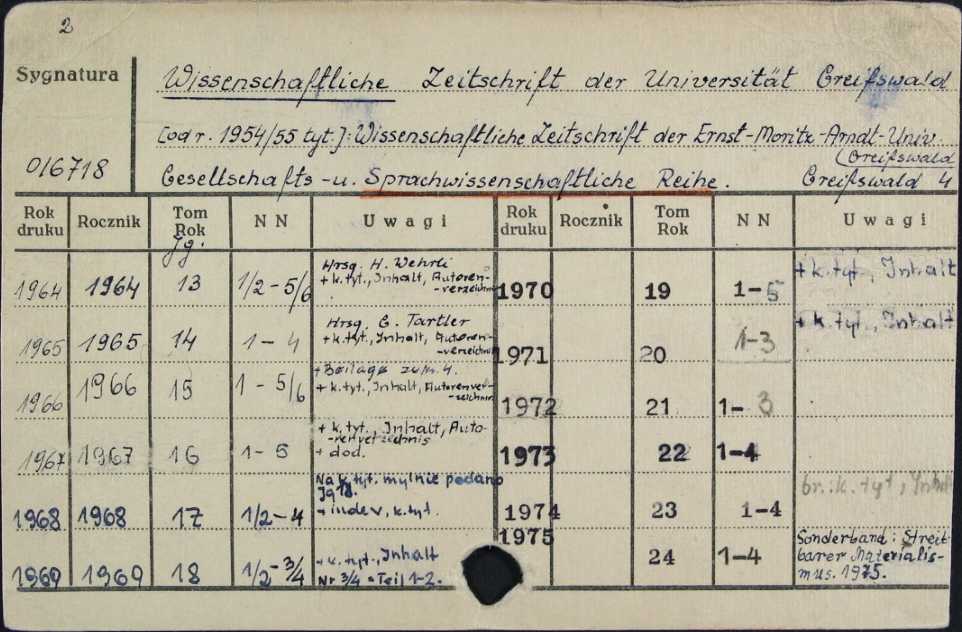 2
Sygnatura
Wissenschaftliche Zeitschrift der Universität Greifswald
[od r. 1954/55 tyt.]: Wissenschaftliche Zeitschrift der Ernst-Moritz-Arndt-Univ.
(Greifswald
016718
Gesellschafts-u. Sprachwissenschaftliche Reihe. Greifswald 4
Rok druku Rocznik Tom Rok NN Uwagi Rok druku Rocznik Tom Rok NN Uwagi
Jg.
1964 1964 13 1/2-5/6 Hrsg. H. Wehrli
+ k.tyt., Inhalt, Autoren-
-verzeichnis
1970 19 1-5 + k.tyt., Inhalt
1965 1965 14 1-4 Hrsg. G. Tartler
+k.tyt., Inhalt, Autoren-
-verzeichnis
1971 20 1-3 + k.tyt., Inhalt
1966 1966 15 1-5/6 + Beilage zu n. 4.
+k.tyt., Inhalt, Autorenver-
-zeichnis
1972 21 1-3
1967 1967 16 1-5 + k.tyt., Inhalt, Auto-
-renverzeichnis
+ dod.
1973 22 1-4
1968 1968 17 1/2-4 Na k.tyt. mylnie podano
Jg 18.
k.tyt.
1974 23 1-4 br.: k.tyt, Inhalt
1969 1969 18 1/2-3/4 +k.tyt., Inhalt
Nr 3/4 = Teil 1-2.
1975 24 1-4 Sonderband: Streit-
barer Materialis-
mus. 1975.